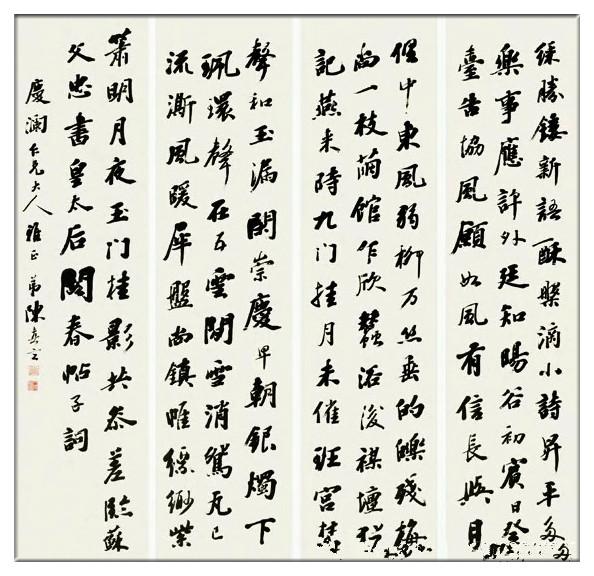 綵勝鏤新語酥槃滴小詩昇平多
樂事應許外廷知暘谷初賓日登
臺告協風願如風有信長與日
俱中東風弱柳万丝垂的皪殘梅
尚一枝繭館乍欣蠶浴後禖壇猶
記燕来時九门挂月未催班宮禁
聲和玉漏閒崇慶早朝銀燭下
珮環聲在五雲間雪消鴛瓦已
流澌風暖犀盤尚鎮帷縹緲紫
蕭明月夜玉门桂影共參差臨蘇
文忠書皇太后閣春帖子詞
慶瀾仁兄大人雅正弟陳